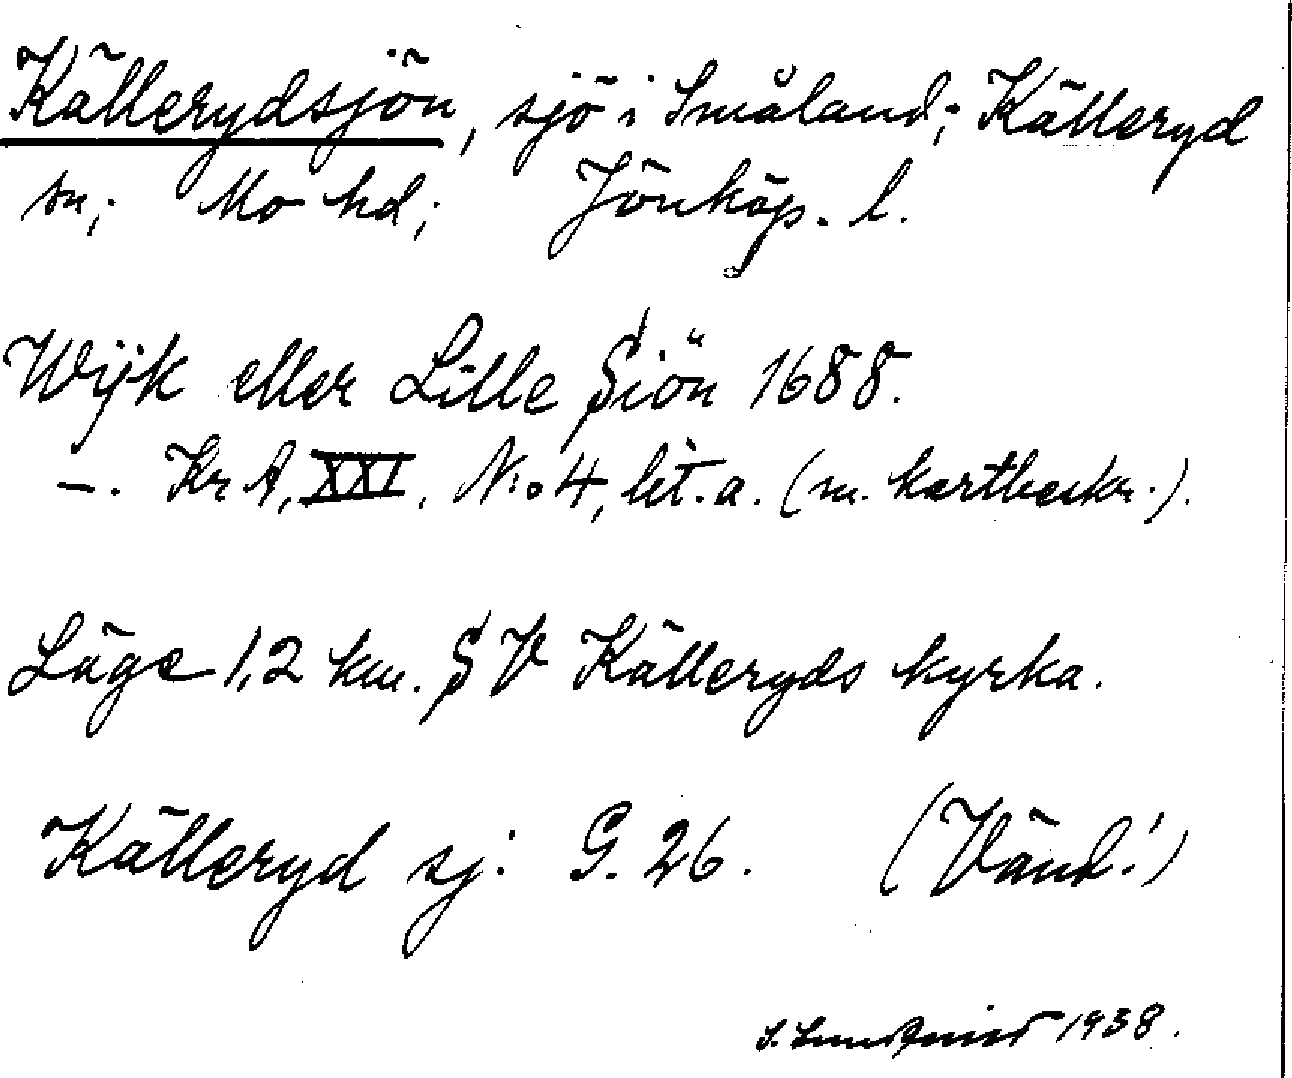 Källerydsjön, sjö i Småland; Källeryd
sn; Mo hd; Jönköp. l.
Wijk eller Lille Siön 1688.
–. Kr A, XXI. N:o 4, lit. a. (m. kartbeskr.).
Läge 1,2 km. SV Källeryds kyrka.
Källeryd sj: G. 26. (Vänd!)
S. Lundqvist 1938.